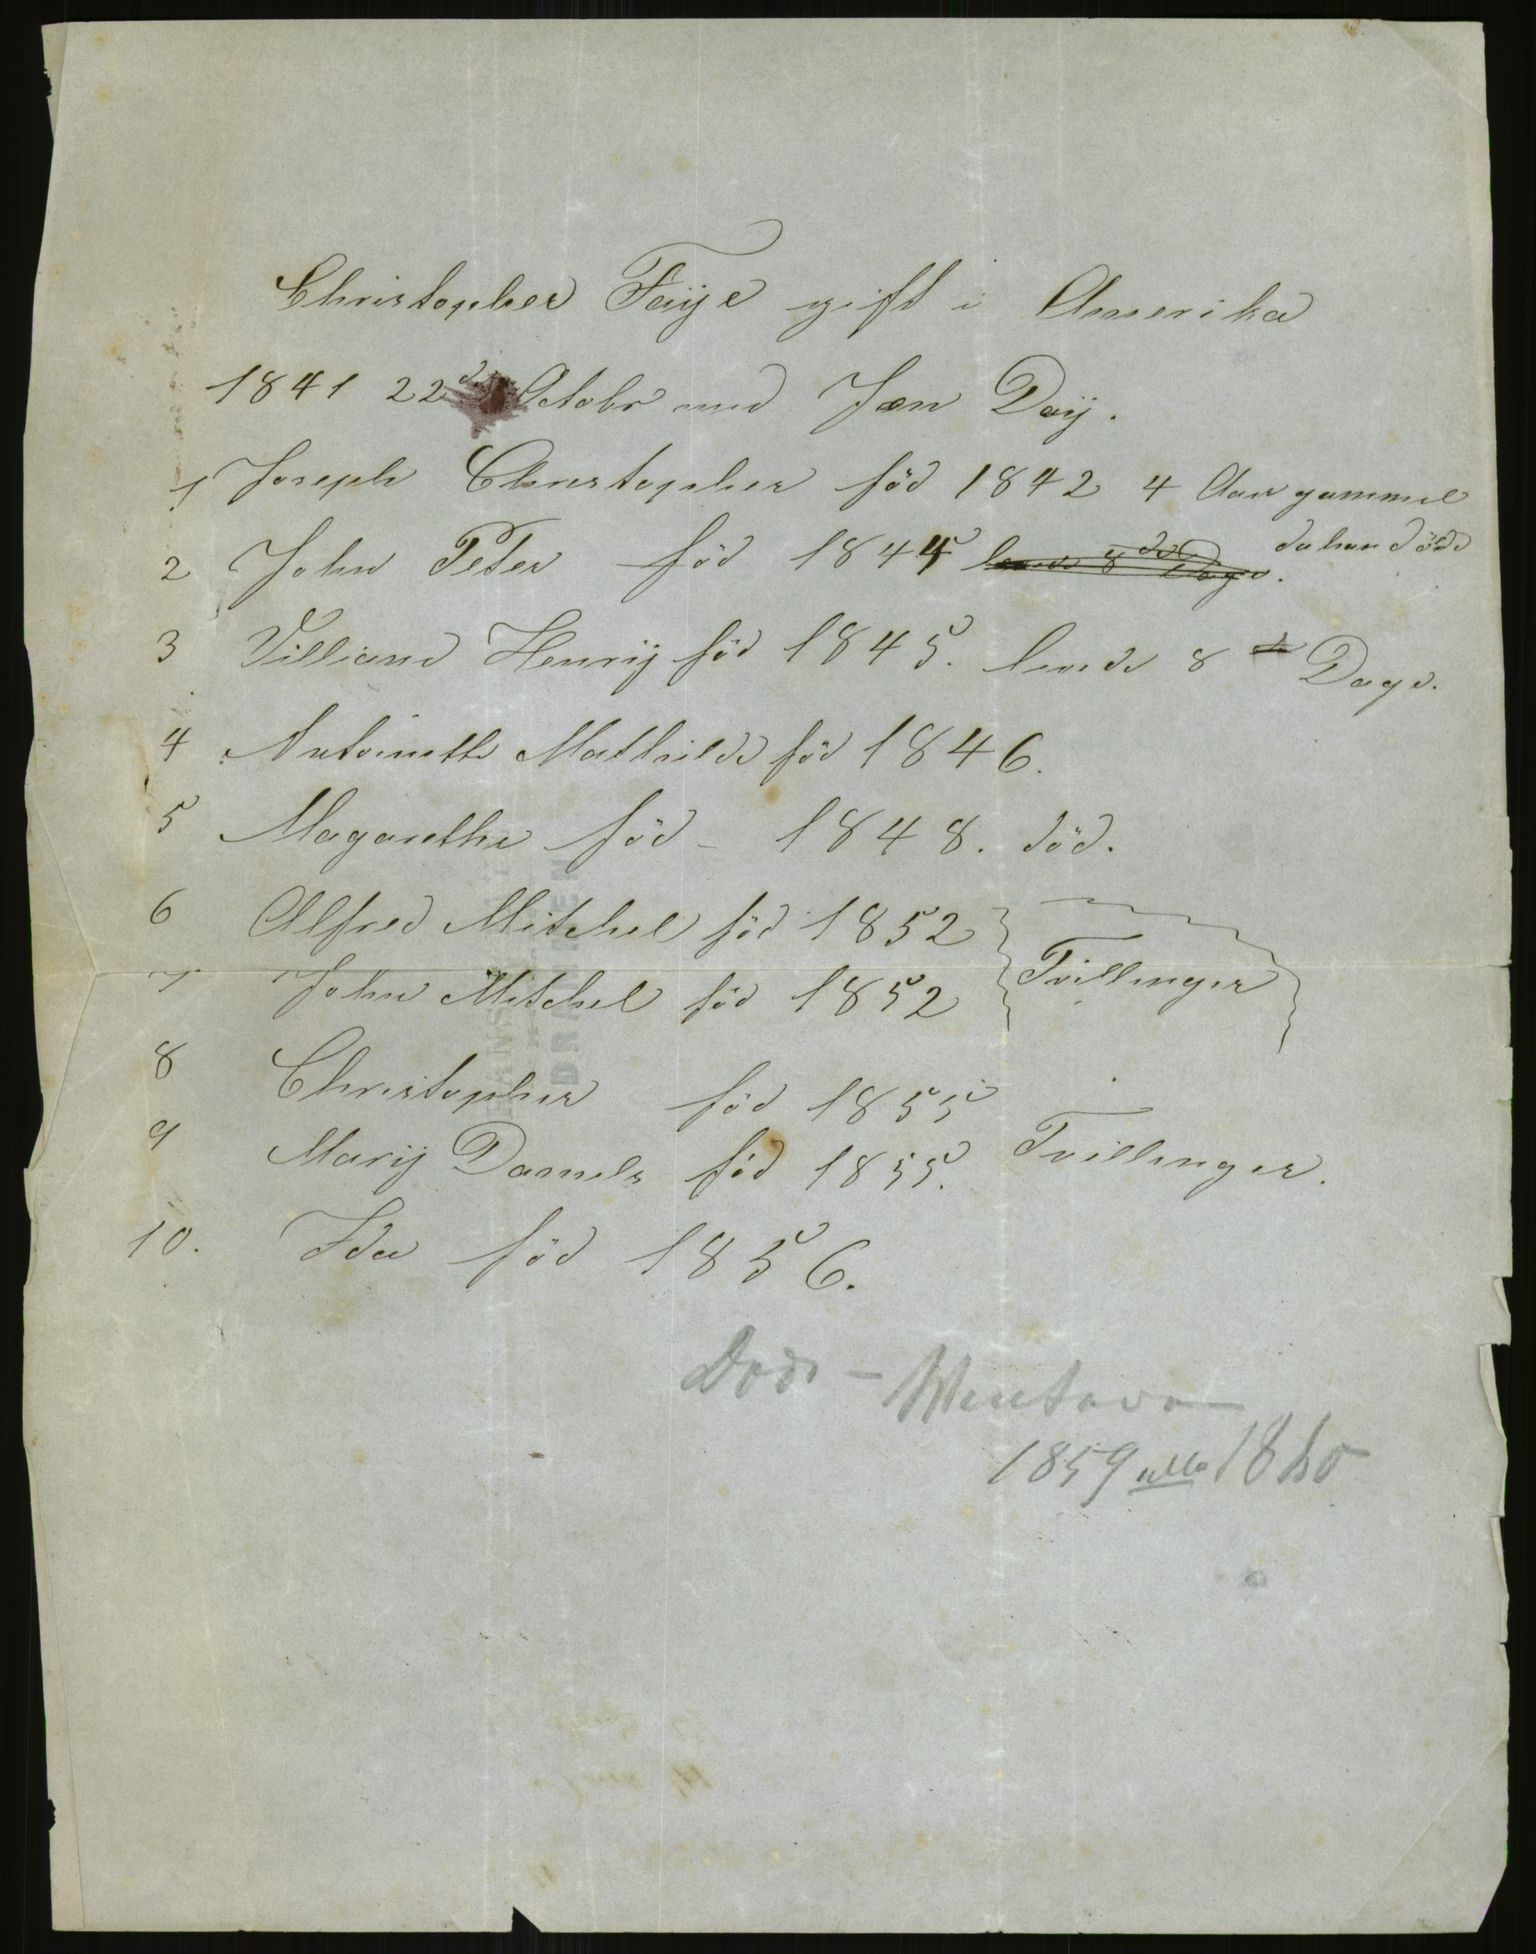 Christopher Faÿe gift i Amerika
1841 22de Octobr med Jæn Daÿ.
1 Joseph Christopher föd 1842 4 Aar gammel
da han döde
2 John Peter föd 1844 levede 8 Dage.
3 Villiam Henrÿ föd 1845. levede 8 Dage.
4 Antoinette Mathilde föd 1846.
5 Magarethe föd - 1848. död.
6 Alfred Mitchel föd 1852
Tvillinger
7 John Mitchel föd 1852
8 Christopher föd 1855
9 Marÿ Daniels föd 1855. Tvillinger.
10. Ida föd 1856.
Döde -
1859 eller 1860